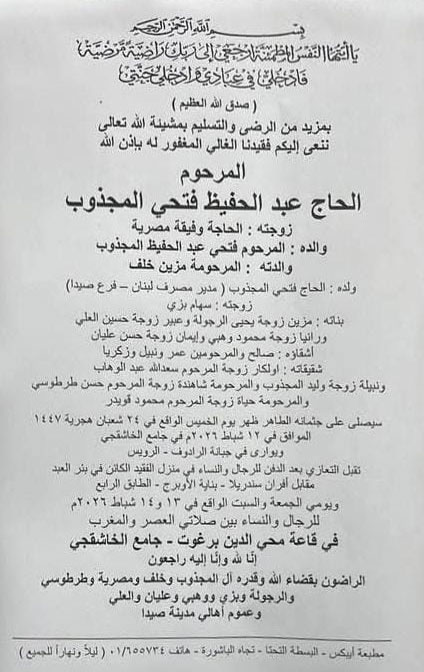 بسم الله الرحمن الرحيم
يا أيتها النفس المطمئنة ارجعي إلى ربك راضية مرضية
فادخلي في عبادي وادخلي جنتي
( صدق الله العظيم )
بمزيد من الرضى والتسليم بمشيئة الله تعالى
ننعى إليكم فقيدنا الغالي المغفور له بإذن الله
المرحوم
الحاج عبد الحفيظ فتحي المجذوب
زوجته : الحاجة وفيقة مصرية
والده : المرحوم فتحي عبد الحفيظ المجذوب
والدته : المرحومة مزين خلف
ولده : الحاج فتحي المجذوب ( مدير مصرف لبنان – فرع صيدا)
زوجته : سهام بزي
بناته : مزين زوجة يحيى الرجولة وعبير زوجة حسين العلي
ورانيا زوجة محمود وهبي وإيمان زوجة حسن عليان
أشقاؤه : صالح والمرحومين عمر ونبيل وزكريا
شقيقاته : اولكار زوجة المرحوم سعدالله عبد الوهاب
ونبيلة زوجة وليد المجذوب والمرحومة شاهندة زوجة المرحوم حسن طرطوسي
والمرحومة حياة زوجة المرحوم محمود قويدر
سيصلى على جثمانه الطاهر ظهر يوم الخميس الواقع في ٢٤ شعبان هجرية ١٤٤٧
الموافق في ١٢ شباط ٢٠٢٦م في جامع الخاشقجي
ويوارى في جبانة الرادوف - الرويس
تقبل التعازي بعد الدفن للرجال والنساء في منزل الفقيد الكائن في بئر العبد
مقابل أفران سندريلا - بناية الأوبرج - الطابق الرابع
ويومي الجمعة والسبت الواقع في ١٣ و١٤ شباط ٢٠٢٦م
للرجال والنساء بين صلاتي العصر والمغرب
في قاعة محي الدين برغوت - جامع الخاشقجي
إنا لله وإنا إليه راجعون
الراضون بقضاء الله وقدره آل المجذوب وخلف ومصرية وطرطوسي
والرجولة وبزي ووهبي وعليان والعلي
وعموم أهالي مدينة صيدا
مطبعة أبيكس - البسطة التحتا - تجاه الباشورة - هاتف ٠١/٦٥٥٧٣٤ ( ليلاً ونهاراً للجميع )